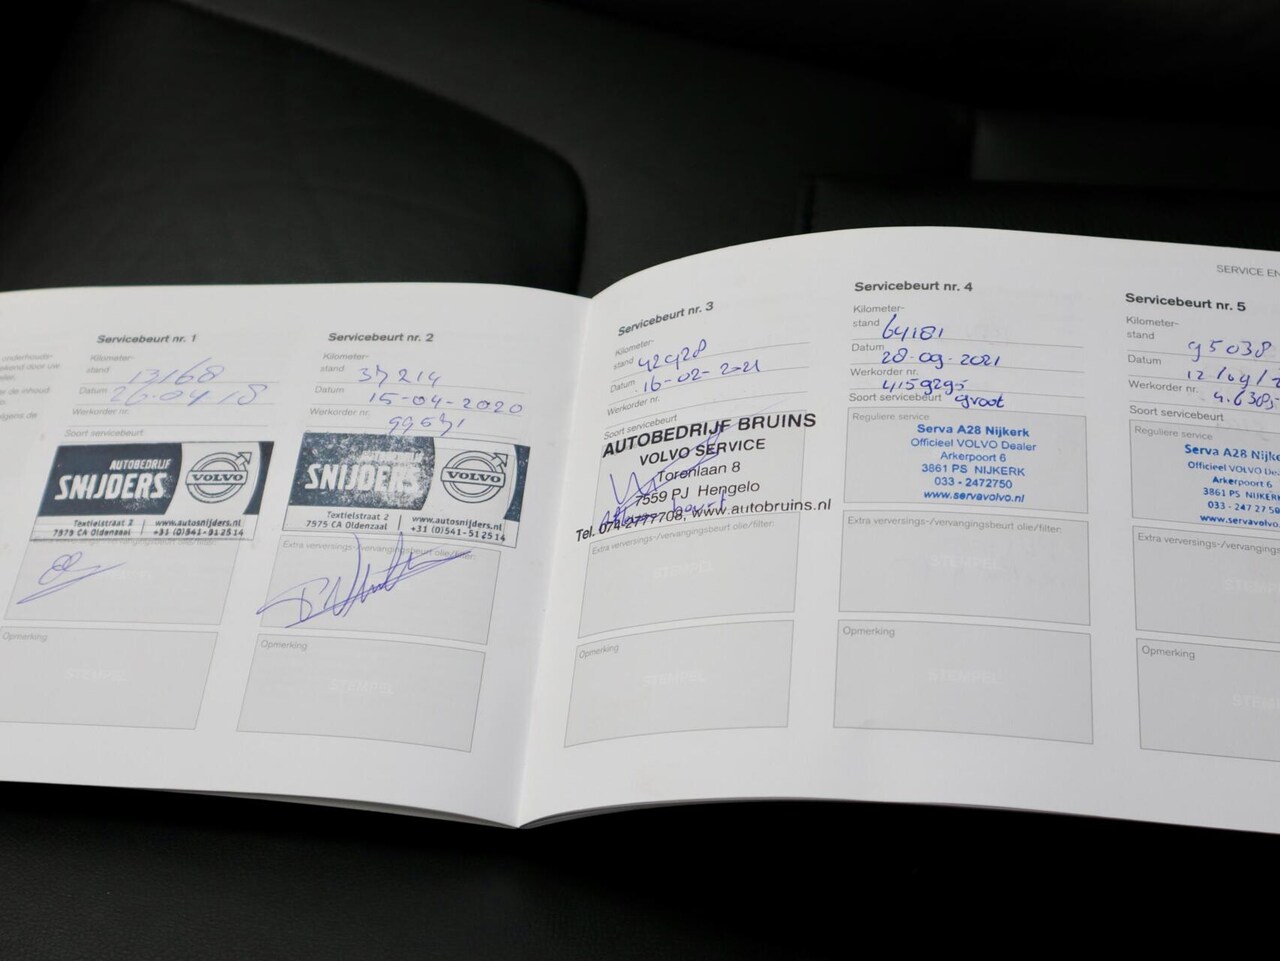 Servicebeurt nr. 1
Kilometer-
stand 13168
Datum 26.04 18
Werkorder nr.
Soort servicebeurt
AUTOBEDRIJF
SNIJDERS
VOLVO
Textielstraat 2
7575 CA Oldenzaal
www.autosnijders.nl
+31 (0)541-512514
Opmerking
STEMPEL
Servicebeurt nr. 2
Kilometer-
stand 37214
Datum 15-04-2020
Werkorder nr.
Soort servicebeurt
AUTOBEDRIJF
SNIJDERS
VOLVO
Textielstraat 2
7575 CA Oldenzaal
www.autosnijders.nl
+31 (0)541-512514
Extra verversings-/vervangingsbeurt olie/filter:
Opmerking
STEMPEL
Servicebeurt nr. 3
Kilometer-
stand 42928
Datum 16-02-2021
Werkorder nr.
Soort servicebeurt
AUTOBEDRIJF BRUINS
VOLVO SERVICE
Torenlaan 8
7559 PJ Hengelo
Tel. 074-2777708, www.autobruins.nl
Extra verversings-/vervangingsbeurt olie/filter:
STEMPEL
Opmerking
STEMPEL
Servicebeurt nr. 4
Kilometer-
stand 64181
Datum 28-09-2021
Werkorder nr.
4159295
Soort servicebeurt groot
Reguliere service
Serva A28 Nijkerk
Officieel VOLVO Dealer
Arkerpoort 6
3861 PS NIJKERK
033 - 2472750
www.servavolvo.nl
Extra verversings-/vervangingsbeurt olie/filter:
STEMPEL
Opmerking
STEMPEL
SERVICE EN
Servicebeurt nr. 5
Kilometer-
stand 95038
Datum
Werkorder nr.
Soort servicebeurt
Reguliere service
Serva A28 Nijke
Officieel VOLVO De
Arkerpoort 6
3861 PS NIJKER
033 - 247 27 50
www.servavolvo.
Extra verversings-/vervangings
Opmerking